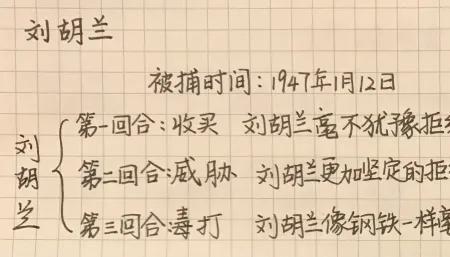 刘胡兰
被捕时间：1947年1月12日
刘胡兰
第一回合：收买 刘胡兰毫不犹豫拒
第二回合：威胁 刘胡兰更加坚定的拒
第三回合：毒打 刘胡兰像钢铁一样